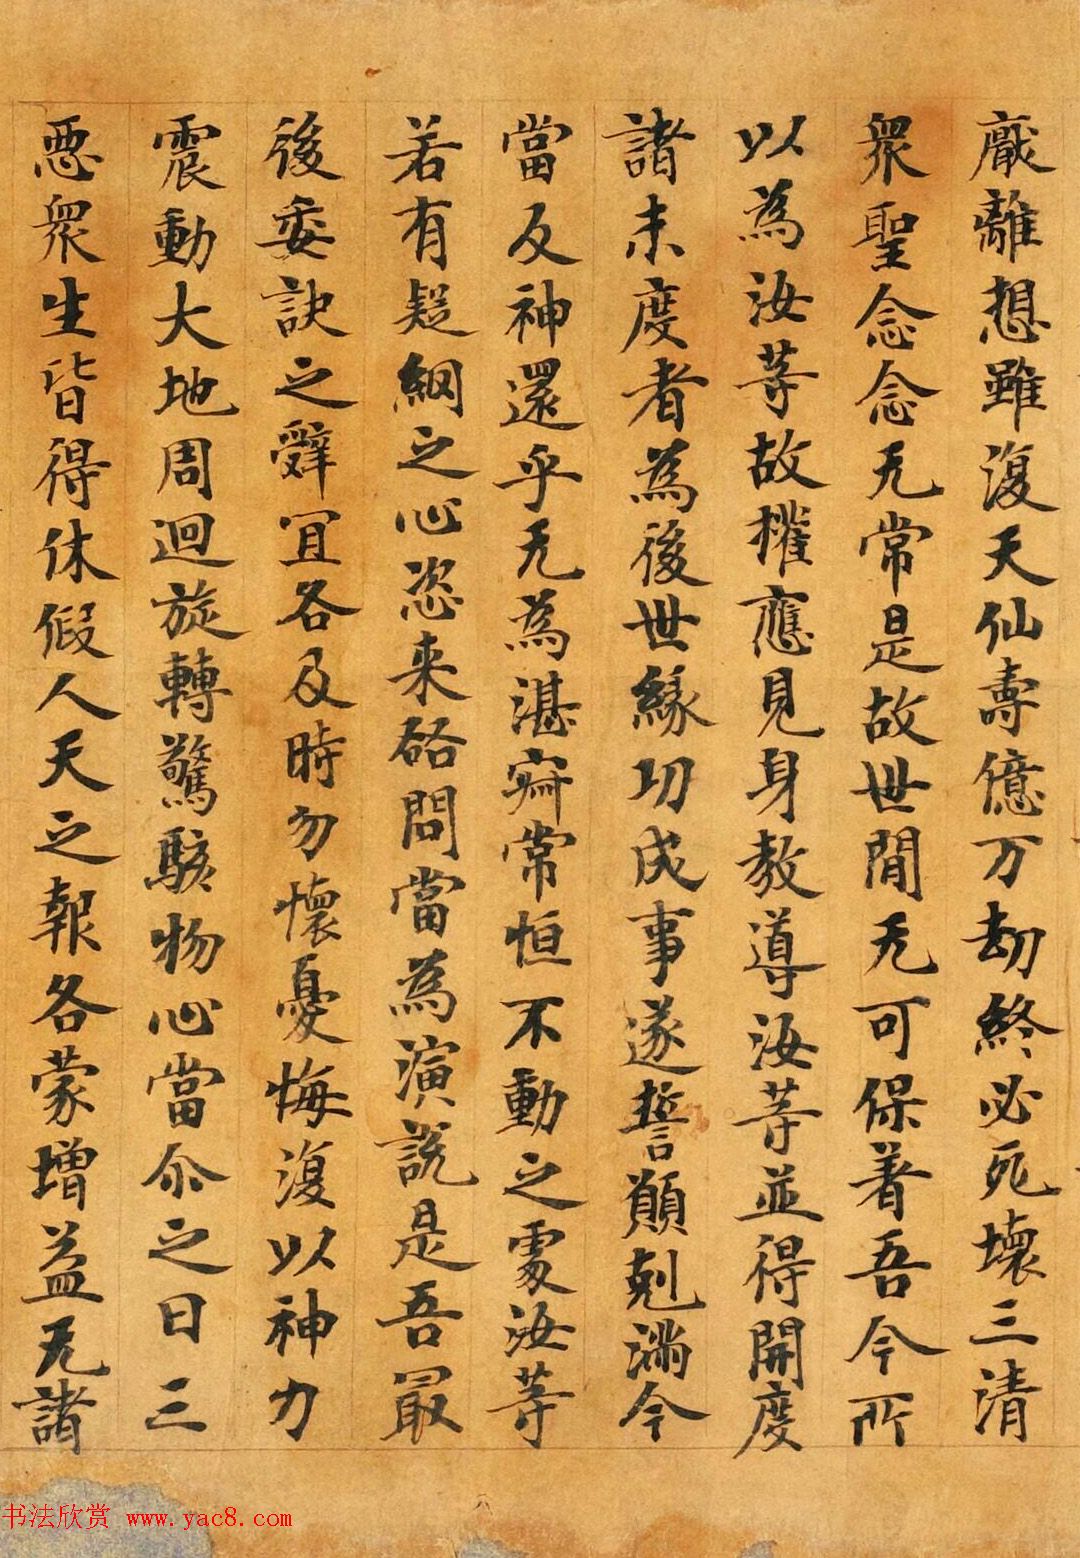 厭離想雖復天仙壽億万劫終必死壞三清
衆聖念念无常是故世間无可保著吾今所
以為汝等故權應見身教導汝等並得開度
諸未度者為後世緣功成事遂誓願剋滿今
當反神還乎无為湛寂常恒不動之處汝等
若有疑網之心恣来啓問當為演說是吾最
後委訣之辭冝各及時勿懷憂悔復以神力
震動大地周迴旋轉驚駭物心當尒之日三
惡衆生皆得休假人天之報各蒙增益无諸
书法欣赏 www.yac8.com